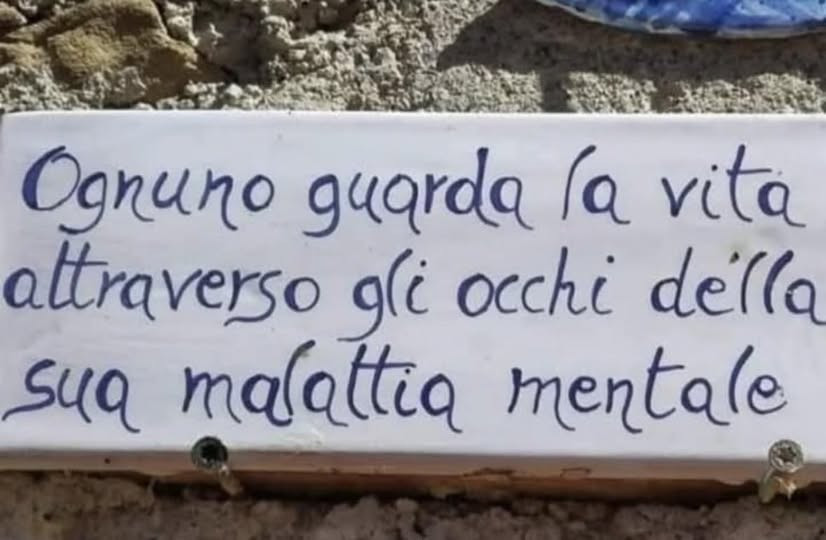 Ognuno guarda la vita
attraverso gli occhi della
sua malattia mentale